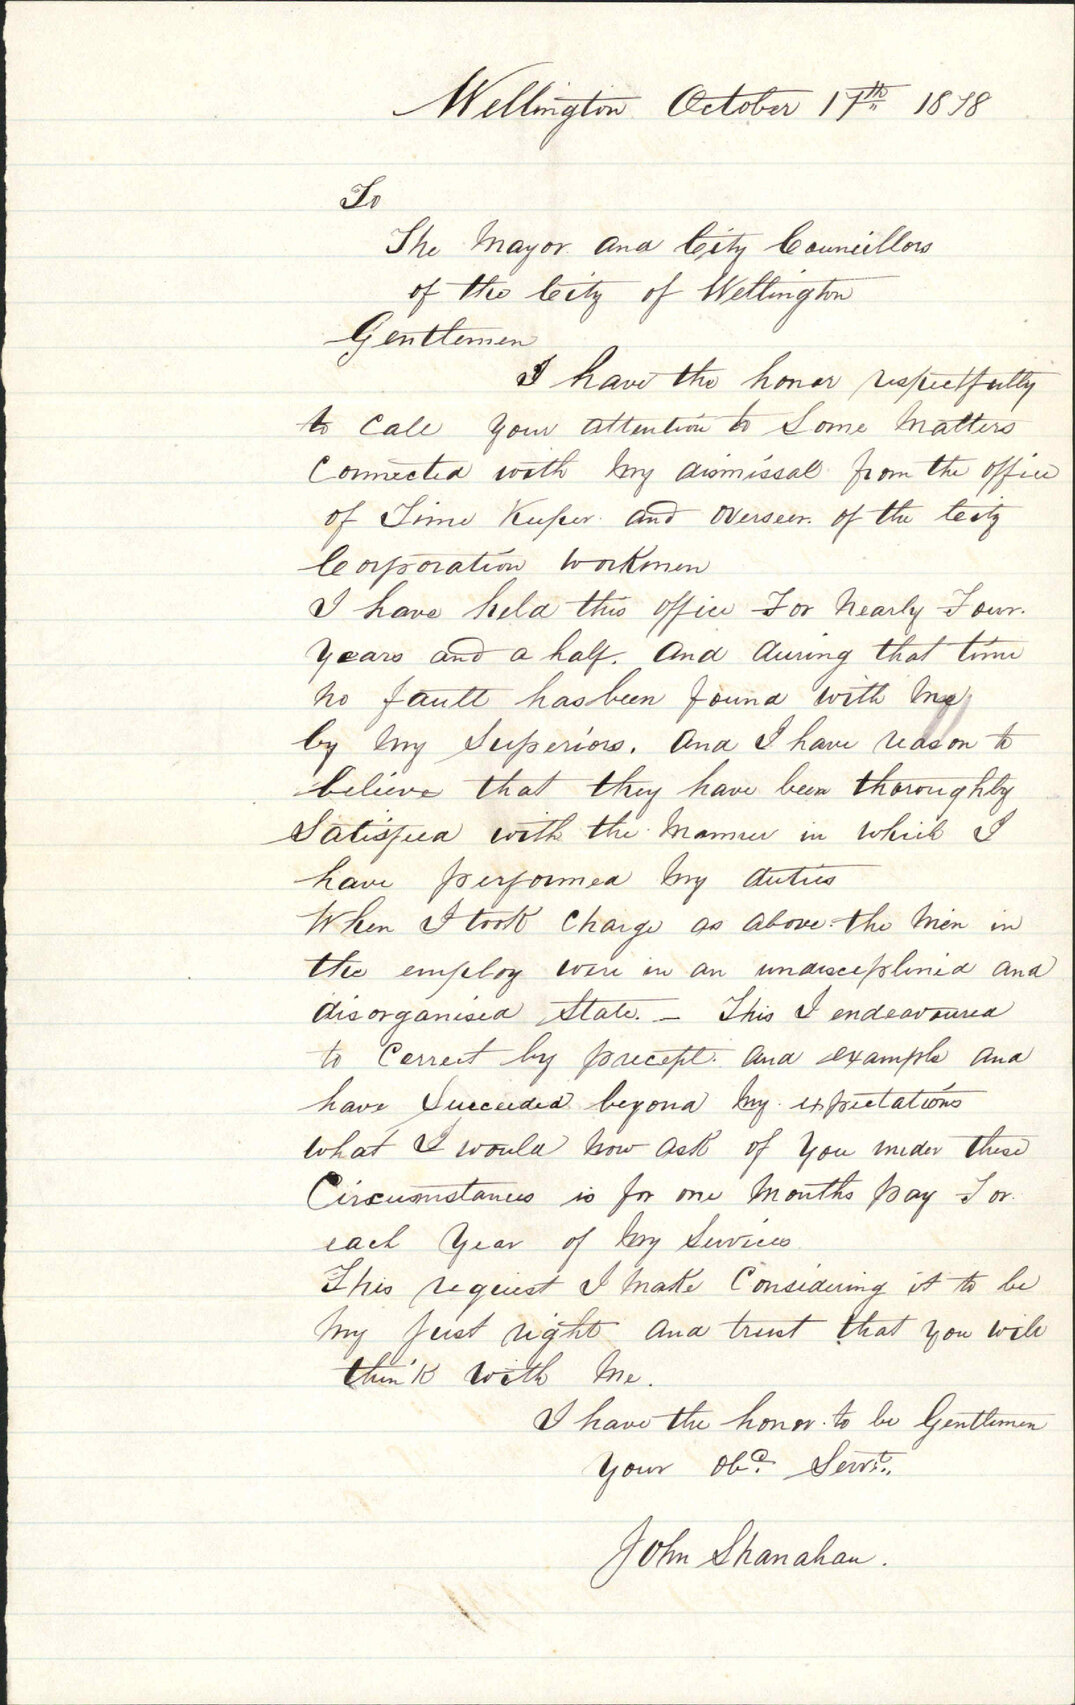 Wellington October 17th 1878
To
The Mayor and City Councillors
of the City of Wellington
Gentlemen
I have the honor respectfully
to Call your attention to Some Matters
Connected with My dismissal from the office
of Time Keeper and overseer of the City
Corporation workmen
I have held this office For Nearly Four
Years and a half. And during that time
no fault has been found with Me
by My Superiors. And I have reason to
believe that they have been thoroughly
Satisfied with the Manner in which I
have performed My duties
When I took Charge as above the Men in
the employ were in an undisciplined and
disorganised State. — This I endeavoured
to Correct by precept and example and
have Succeeded beyond My expectations
what I would Now ask of You under these
Circumstances is for one Months pay For
each Year of My Services
This request I Make Considering it to be
My just right and trust that you will
think with Me.
I have the honor to be Gentlemen
Your Obd. Servt.
John Shanahan.